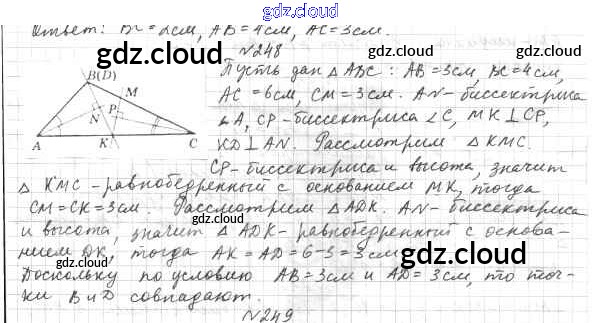 gdz.cloud
Ответ: BC = 2см, AB = 4см, AC = 3см.
№248
Пусть дан △ABC: AB = 3см, BC = 4см,
AC = 6см, CM = 3см. AN - биссектриса
∠A, CP - биссектриса ∠C, MK ⊥ CP,
KD ⊥ AN. Рассмотрим △KMC.
CP - биссектриса и высота, значит
△KMC - равнобедренный с основанием MK, тогда
CM = CK = 3см. Рассмотрим △ADK. AN - биссектриса
и высота, значит △ADK - равнобедренный с основа-
нием DK, тогда AK = AD = 6 - 3 = 3см
Поскольку по условию AB = 3см и AD = 3см, то точ-
ки B и D совпадают.
№249
B(D)
M
N
P
A
K
C
gdz.cloud
gdz.cloud
gdz.cloud
gdz.cloud
gdz.cloud
gdz.cloud